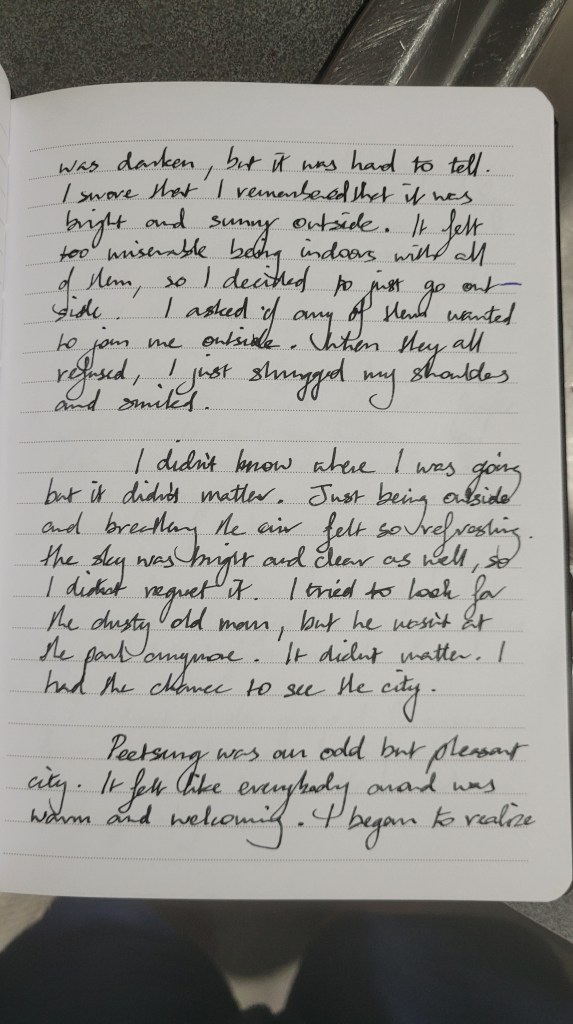 was darker, but it was hard to tell.
I swore that I remembered that it was
bright and sunny outside. It felt
too miserable being indoors with all
of them, so I decided to just go out-
side. I asked if any of them wanted
to join me outside. When they all
refused, I just shrugged my shoulders
and smiled.
I didn't know where I was going
but it didn't matter. Just being outside
and breathing the air felt so refreshing.
The sky was bright and clear as well, so
I didn't regret it. I tried to look for
the dusty old man, but he wasn't at
the park anymore. It didn't matter. I
had the chance to see the city.
Peetsung was an odd but pleasant
city. It felt like everybody around was
warm and welcoming. I began to realize